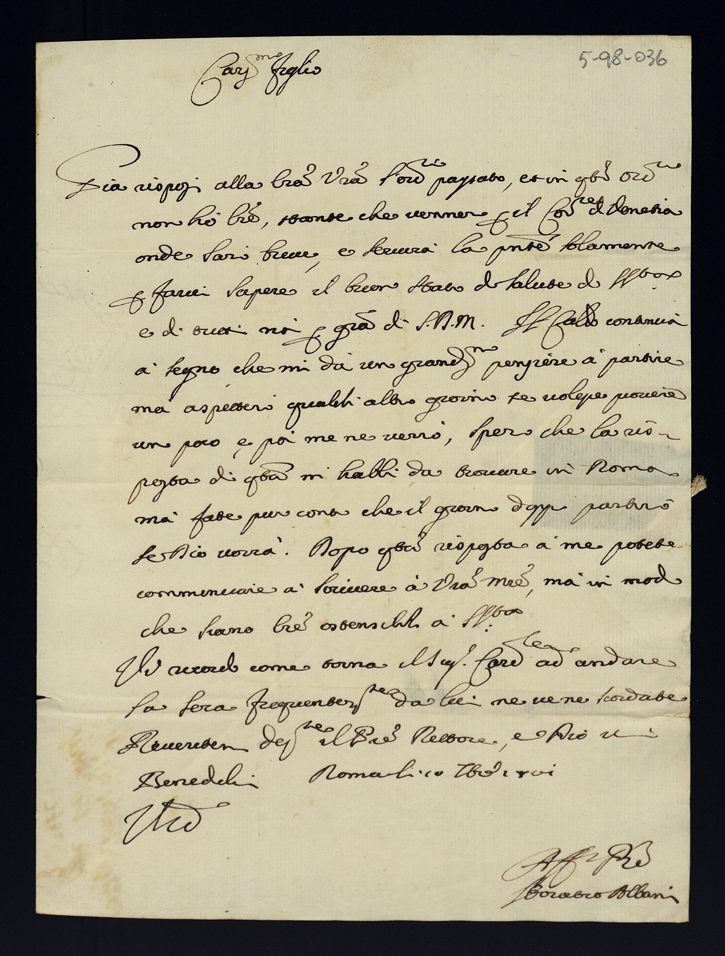 5-98-036
Car.mo figlio
Già risposi alla lrã Vrã l'ord.rio passato, et in qto ord.rio
non hò lrẽ, stante che venner p il Cor.re di Venetia
onde sarò breve, e servirà la pntẽ solamente
p farvi sapere il buon stato di salute di
e di tutti noi p grã di S.D.M. Il Caldo continua
à segno che mi dà un grand.mo pensiere à partire
ma aspetterò qualch'altro giorno se volesse piovere
un poco e poi me ne verrò, spero che la ris-
posta di qta mi habbi da trovare in Roma
mà fate pur conto che il giorno dopo partirò
se Dio vorrà. Dopo qta risposta à me potete
cominciare à scrivere à Vrã Mrẽ, mà in modo
che siano lrẽ ostensibili à
Vi ricordo come torna il Sig. Card.le ad andare
la sera frequentem.te da lui ne ve ne scordate
Riverite il Prẽ Rettore, e Dio vi
Benedichi Roma li
Aff.mo Prẽ
Horatio Albani